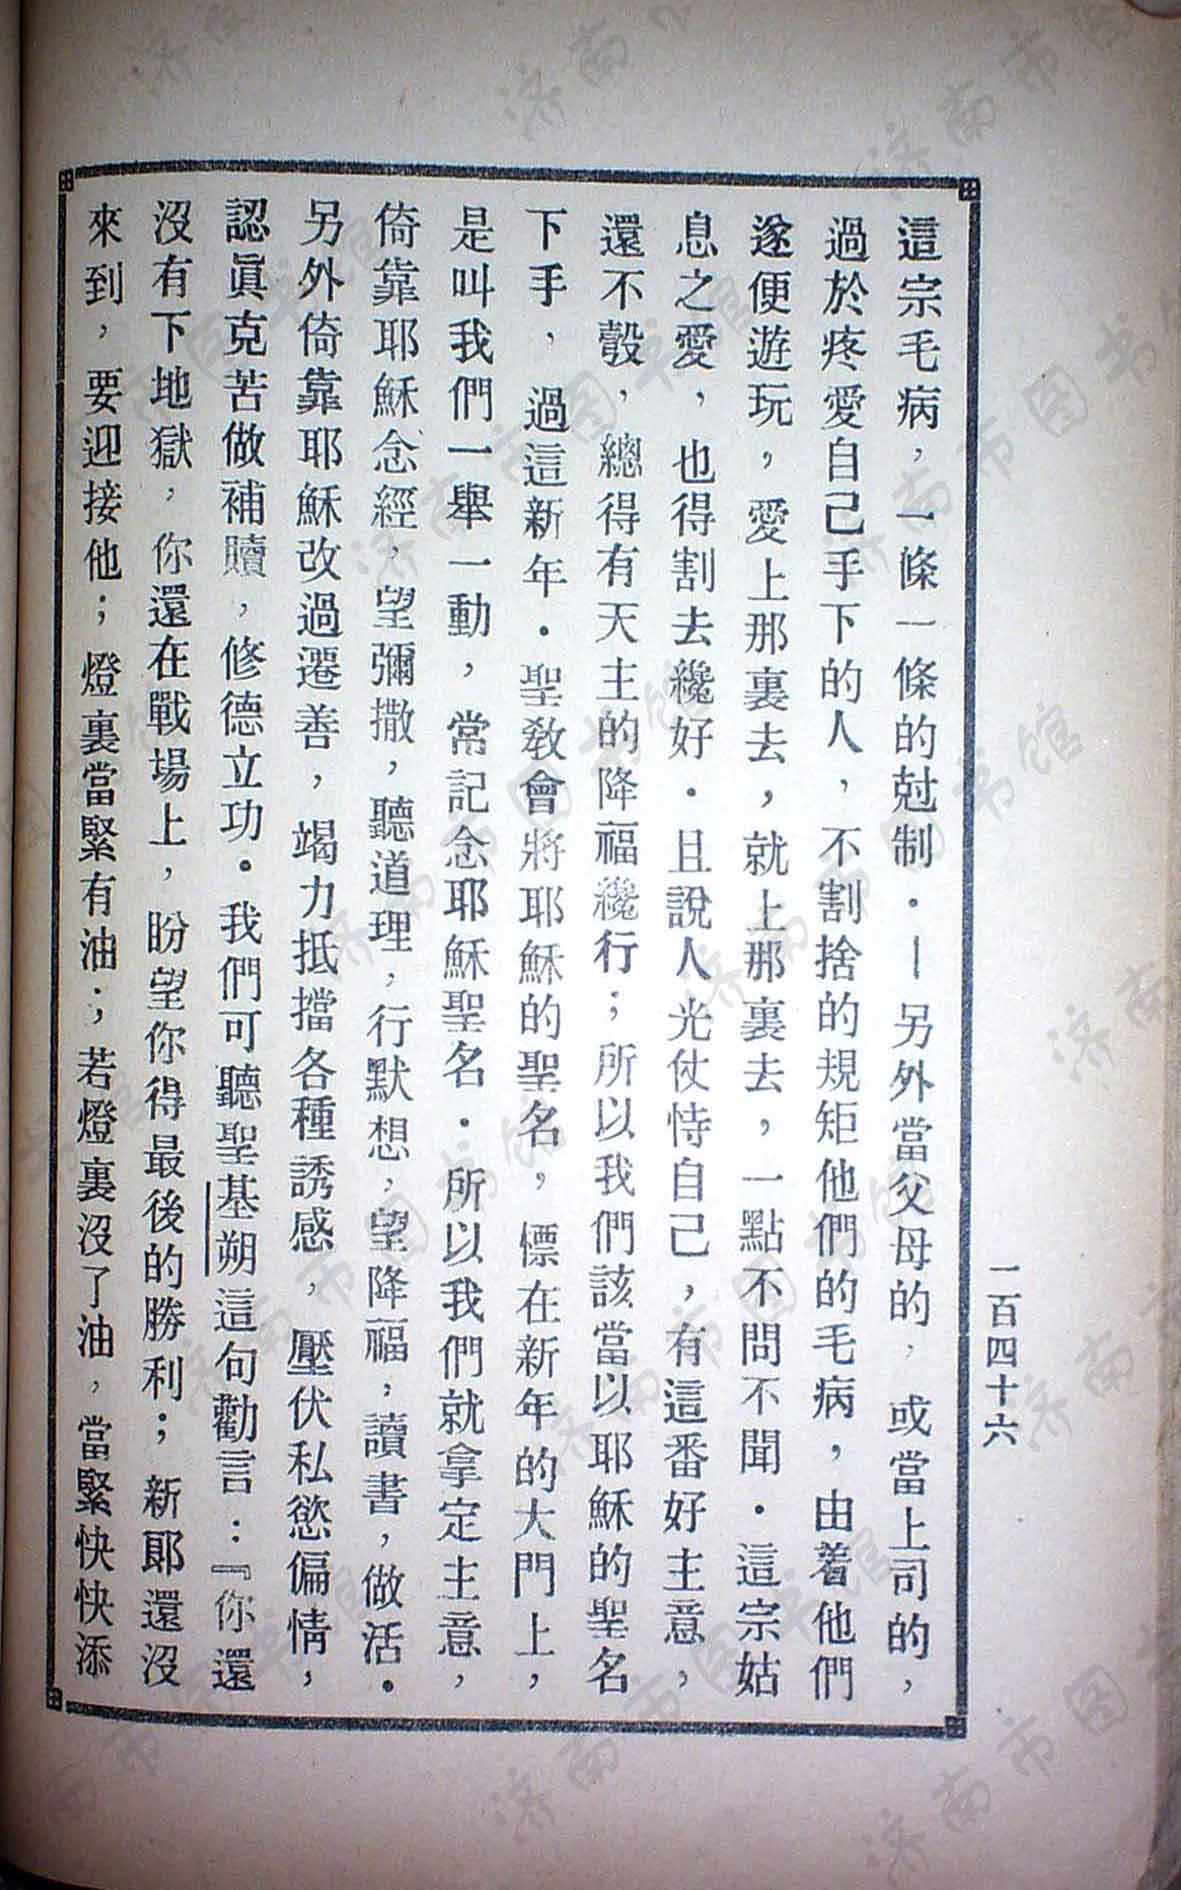 一百四十六
這宗毛病，一條一條的尅制．—另外當父母的，或當上司的，
過於疼愛自己手下的人，不割捨的規矩他們的毛病，由着他們
遂便遊玩，愛上那裏去，就上那裏去，一點不問不聞．這宗姑
息之愛，也得割去纔好．且說人光仗恃自己，有這番好主意，
還不彀，總得有天主的降福纔行；所以我們該當以耶穌的聖名
下手，過這新年．聖教會將耶穌的聖名，懔在新年的大門上，
是叫我們一舉一動，常記念耶穌聖名．所以我們就拿定主意，
倚靠耶穌念經，望彌撒，聽道理，行默想，望降福，讀書，做活．
另外倚靠耶穌改過遷善，竭力抵擋各種誘感，壓伏私慾偏情，
認眞克苦做補贖，修德立功．我們可聽聖基朔這句勸言：『你還
沒有下地獄，你還在戰場上，盼望你得最後的勝利；新郎還沒
來到，要迎接他；燈裏當緊有油；若燈裏沒了油，當緊快快添
济南市图书馆